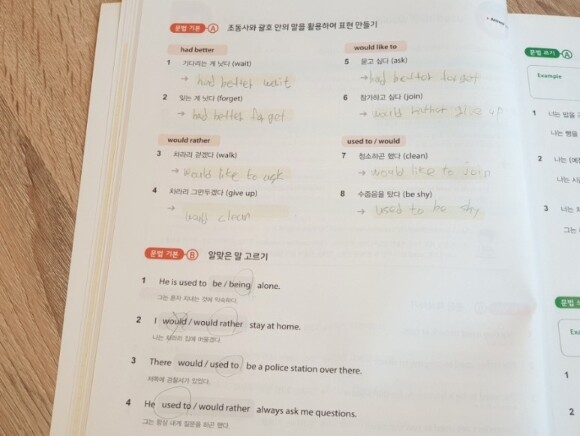 문법 기본 A 조동사와 괄호 안의 말을 활용하여 표현 만들기
had better
1 기다리는 게 낫다 (wait)
→ had better wait
2 잊는 게 낫다 (forget)
→ had better forget
would rather
3 차라리 걷겠다 (walk)
→ would like to ask
4 차라리 그만두겠다 (give up)
→ would clean
would like to
5 묻고 싶다 (ask)
→ had better forget
6 참가하고 싶다 (join)
→ would rather give up
used to / would
7 청소하곤 했다 (clean)
→ would like to join
8 수줍음을 탔다 (be shy)
→ used to be shy
문법 기본 B 알맞은 말 고르기
1 He is used to be / being alone.
그는 혼자 지내는 것에 익숙하다.
2 I would / would rather stay at home.
나는 차라리 집에 머물겠다.
3 There would / used to be a police station over there.
저쪽에 경찰서가 있었다.
4 He used to / would rather always ask me questions.
그는 항상 내게 질문을 하곤 했다.
문법 쓰기 A
Example
1 너는 법을
너는 빵을
2 나는
나는
3 너는
그는
Ex
1
2